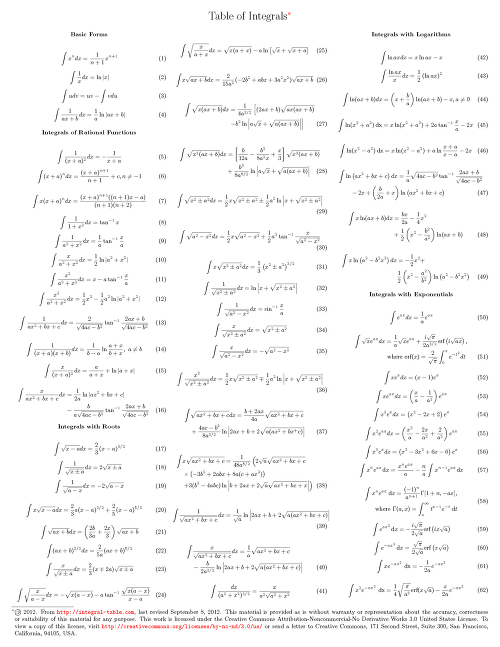 Table of Integrals*
Basic Forms
∫ xⁿdx = 1/(n+1) xⁿ⁺¹ (1)
∫ 1/x dx = ln |x| (2)
∫ udv = uv − ∫ vdu (3)
∫ 1/(ax + b) dx = 1/a ln |ax + b| (4)
Integrals of Rational Functions
∫ 1/(x + a)² dx = − 1/(x + a) (5)
∫ (x + a)ⁿdx = (x + a)ⁿ⁺¹/(n + 1), n ≠ −1 (6)
∫ x(x + a)ⁿdx = (x + a)ⁿ⁺¹((n + 1)x − a)/((n + 1)(n + 2)) (7)
∫ 1/(1 + x²) dx = tan⁻¹ x (8)
∫ 1/(a² + x²) dx = 1/a tan⁻¹ x/a (9)
∫ x/(a² + x²) dx = 1/2 ln |a² + x²| (10)
∫ x²/(a² + x²) dx = x − a tan⁻¹ x/a (11)
∫ x³/(a² + x²) dx = 1/2 x² − 1/2 a² ln |a² + x²| (12)
∫ 1/(ax² + bx + c) dx = 2/√(4ac − b²) tan⁻¹ (2ax + b)/√(4ac − b²) (13)
∫ 1/((x + a)(x + b)) dx = 1/(b − a) ln (a + x)/(b + x), a ≠ b (14)
∫ x/(x + a)² dx = a/(a + x) + ln |a + x| (15)
∫ x/(ax² + bx + c) dx = 1/2a ln |ax² + bx + c|
− b/(a√(4ac − b²)) tan⁻¹ (2ax + b)/√(4ac − b²) (16)
Integrals with Roots
∫ √(x − a) dx = 2/3 (x − a)^(3/2) (17)
∫ 1/√(x ± a) dx = 2√(x ± a) (18)
∫ 1/√(a − x) dx = −2√(a − x) (19)
∫ x√(x − a) dx = 2/3 a(x − a)^(3/2) + 2/5 (x − a)^(5/2) (20)
∫ √(ax + b) dx = (2b/3a + 2x/3) √(ax + b) (21)
∫ (ax + b)^(3/2) dx = 2/5a (ax + b)^(5/2) (22)
∫ x/√(x ± a) dx = 2/3 (x ∓ 2a)√(x ± a) (23)
∫ √(x/(a − x)) dx = −√(x(a − x)) − a tan⁻¹ √(x(a − x))/(x − a) (24)
∫ √(x/(a + x)) dx = √(x(a + x)) − a ln [√x + √(x + a)] (25)
∫ x√(ax + b) dx = 2/15a² (−2b² + abx + 3a²x²)√(ax + b) (26)
∫ √(x(ax + b)) dx = 1/4a^(3/2) [(2ax + b)√(ax(ax + b))
−b² ln |a√x + √(a(ax + b))|] (27)
∫ √(x³(ax + b)) dx = [b/12a − b²/8a²x + x/3] √(x³(ax + b))
+ b³/8a^(5/2) ln |a√x + √(a(ax + b))| (28)
∫ √(x² ± a²) dx = 1/2 x√(x² ± a²) ± 1/2 a² ln |x + √(x² ± a²)|
(29)
∫ √(a² − x²) dx = 1/2 x√(a² − x²) + 1/2 a² tan⁻¹ x/√(a² − x²)
(30)
∫ x√(x² ± a²) dx = 1/3 (x² ± a²)^(3/2) (31)
∫ 1/√(x² ± a²) dx = ln |x + √(x² ± a²)| (32)
∫ 1/√(a² − x²) dx = sin⁻¹ x/a (33)
∫ x/√(x² ± a²) dx = √(x² ± a²) (34)
∫ x/√(a² − x²) dx = −√(a² − x²) (35)
∫ x²/√(x² ± a²) dx = 1/2 x√(x² ± a²) ∓ 1/2 a² ln |x + √(x² ± a²)|
(36)
∫ √(ax² + bx + c) dx = (b + 2ax)/4a √(ax² + bx + c)
+ (4ac − b²)/8a^(3/2) ln |2ax + b + 2√(a(ax² + bx⁺c))| (37)
∫ x√(ax² + bx + c) = 1/48a^(5/2) (2√a√(ax² + bx + c)
× (−3b² + 2abx + 8a(c + ax²))
+3(b³ − 4abc) ln |b + 2ax + 2√a√(ax² + bx + c)|) (38)
∫ 1/√(ax² + bx + c) dx = 1/√a ln |2ax + b + 2√(a(ax² + bx + c))|
(39)
∫ x/√(ax² + bx + c) dx = 1/a √(ax² + bx + c)
− b/2a^(3/2) ln |2ax + b + 2√(a(ax² + bx + c))| (40)
∫ dx/(a² + x²)^(3/2) = x/(a²√(a² + x²)) (41)
Integrals with Logarithms
∫ ln ax dx = x ln ax − x (42)
∫ ln ax/x dx = 1/2 (ln ax)² (43)
∫ ln(ax + b) dx = (x + b/a) ln(ax + b) − x, a ≠ 0 (44)
∫ ln(x² + a²) dx = x ln(x² + a²) + 2a tan⁻¹ x/a − 2x (45)
∫ ln(x² − a²) dx = x ln(x² − a²) + a ln (x + a)/(x − a) − 2x (46)
∫ ln (ax² + bx + c) dx = 1/a √(4ac − b²) tan⁻¹ (2ax + b)/√(4ac − b²)
− 2x + (b/2a + x) ln (ax² + bx + c) (47)
∫ x ln(ax + b) dx = bx/2a − 1/4 x²
+ 1/2 (x² − b²/a²) ln(ax + b) (48)
∫ x ln (a² − b²x²) dx = −1/2 x² +
1/2 (x² − a²/b²) ln (a² − b²x²) (49)
Integrals with Exponentials
∫ e^(ax) dx = 1/a e^(ax) (50)
∫ √x e^(ax) dx = 1/a √x e^(ax) + i√π/2a^(3/2) erf (i√(ax)),
where erf(x) = 2/√π ∫₀ˣ e^(−t²) dt (51)
∫ xeˣ dx = (x − 1)eˣ (52)
∫ xe^(ax) dx = (x/a − 1/a²) e^(ax) (53)
∫ x²eˣ dx = (x² − 2x + 2) eˣ (54)
∫ x²e^(ax) dx = (x²/a − 2x/a² + 2/a³) e^(ax) (55)
∫ x³eˣ dx = (x³ − 3x² + 6x − 6) eˣ (56)
∫ xⁿe^(ax) dx = xⁿe^(ax)/a − n/a ∫ xⁿ⁻¹e^(ax) dx (57)
∫ xⁿe^(ax) dx = (−1)ⁿ/aⁿ⁺¹ Γ[1 + n, −ax],
where Γ(a, x) = ∫ₓ^∞ t^(a−1)e^(−t) dt (58)
∫ e^(ax²) dx = − i√π/2√a erf (ix√a) (59)
∫ e^(−ax²) dx = √π/2√a erf (x√a) (60)
∫ xe^(−ax²) dx = − 1/2a e^(−ax²) (61)
∫ x²e^(−ax²) dx = 1/4 √(π/a³) erf(x√a) − x/2a e^(−ax²) (62)
*© 2012. From http://integral-table.com, last revised September 8, 2012. This material is provided as is without warranty or representation about the accuracy, correctness
or suitability of this material for any purpose. This work is licensed under the Creative Commons Attribution-Noncommercial-No Derivative Works 3.0 United States License. To
view a copy of this license, visit http://creativecommons.org/licenses/by-nc-nd/3.0/us/ or send a letter to Creative Commons, 171 Second Street, Suite 300, San Francisco,
California, 94105, USA.